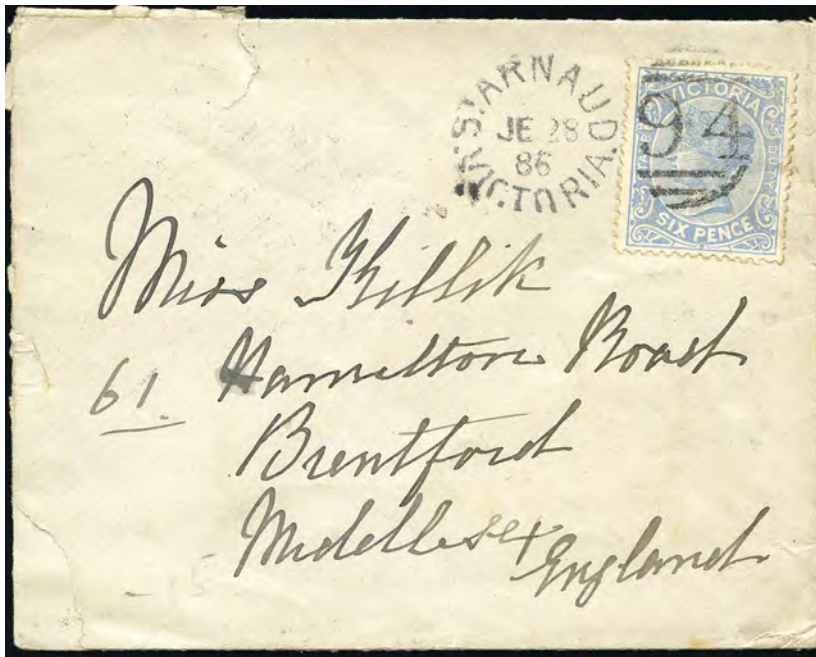 ST ARNAUD
JE 28
86
VICTORIA
VICTORIA
94
STAMP DUTY
SIX PENCE
Miss Killik
61. Hamilton Road
Brentford
Middlesex
England